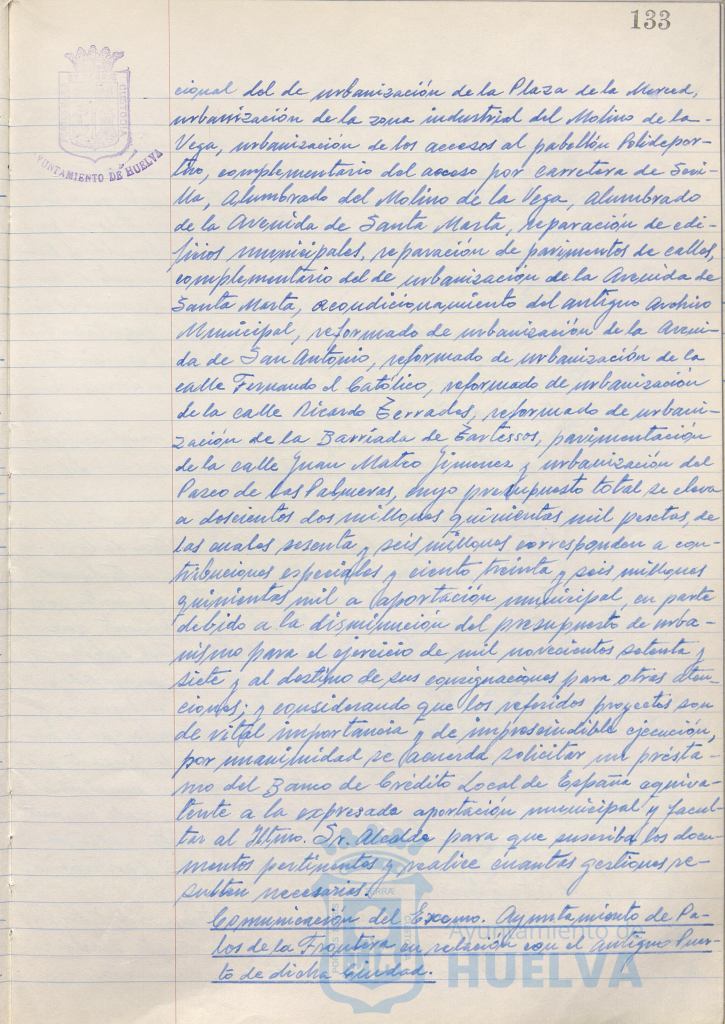 133
AYUNTAMIENTO DE HUELVA
cional del de urbanización de la Plaza de la Merced,
urbanización de la zona industrial del Molino de la
Vega, urbanización de los accesos al pabellón Polidepor-
tivo, complementario del acceso por carretera de Sevi-
lla, Alumbrado del Molino de la Vega, Alumbrado
de la Avenida de Santa Marta, reparación de edi-
ficios municipales, reparación de pavimentos de calles,
complementario del de urbanización de la Avenida de
Santa Marta, acondicionamiento del antiguo Archivo
Municipal, reformado de urbanización de la Aveni-
da de San Antonio, reformado de urbanización de la
calle Fernando el Católico, reformado de urbanización
de la calle Ricardo Terrades, reformado de urbani-
zación de la Barriada de Tartessos, pavimentación
de la calle Juan Mateo Jimenez y urbanización del
Paseo de las Palmeras, cuyo presupuesto total se eleva
a doscientos dos millones quinientas mil pesetas, de
las cuales sesenta y seis millones corresponden a con-
tribuciones especiales y ciento treinta y seis millones
quinientas mil a aportación municipal, en parte
debido a la disminución del presupuesto de urba-
nismo para el ejercicio de mil novecientos setenta y
siete y al destino de sus consignaciones para otras aten-
ciones; y considerando que los referidos proyectos son
de vital importancia y de imprescindible ejecución,
por unanimidad se acuerda solicitar un présta-
mo del Banco de Crédito Local de España equiva-
lente a la expresada aportación municipal y facul-
tar al Iltmo. Sr. Alcalde para que suscriba los docu-
mentos pertinentes y realice cuantas gestiones re-
sulten necesarias.
Comunicación del Excmo. Ayuntamiento de Pa-
los de la Frontera en relación con el Antiguo Puer-
to de dicha Ciudad.
Ayuntamiento de
HUELVA